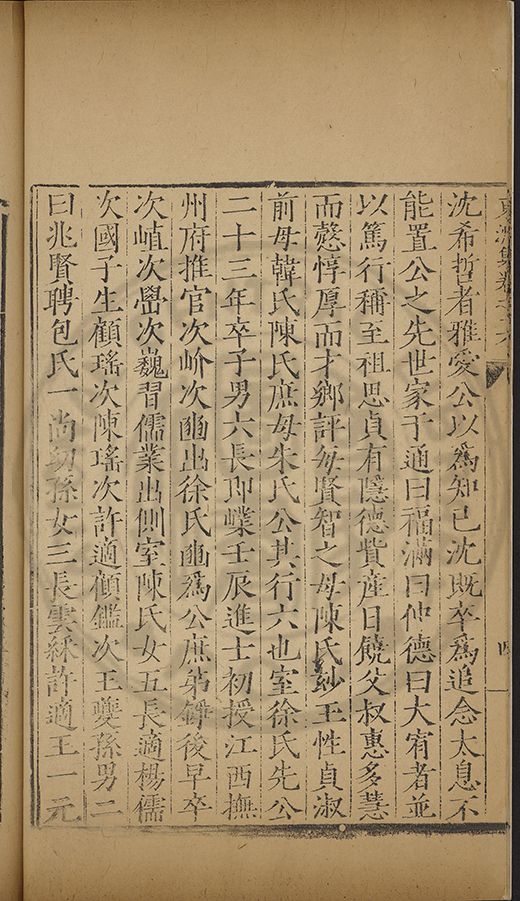 沈希哲者雅愛公以爲知已沈旣卒爲追念太息不
能置公之先世家于通曰福滿曰仲德曰大宥者並
以篤行稱至祖思貞有隱德貲産日饒父叔惠多慧
而慤惇厚而才鄉評每賢智之母陳氏玅王性貞淑
前母韓氏陳氏庶母朱氏公其行六也室徐氏先公
二十三年卒子男六長卽嶫壬辰進士初授江西撫
州府推官次岎次出徐氏爲公庶弟後早卒
次峘次嶨次巍習儒業出側室陳氏女五長適楊儒
次國子生顧瑤次陳瑤次許適顧鑑次王夔孫男二
曰兆賢聘包氏一尚幼孫女三長雲綵許適王一元
集卷
四